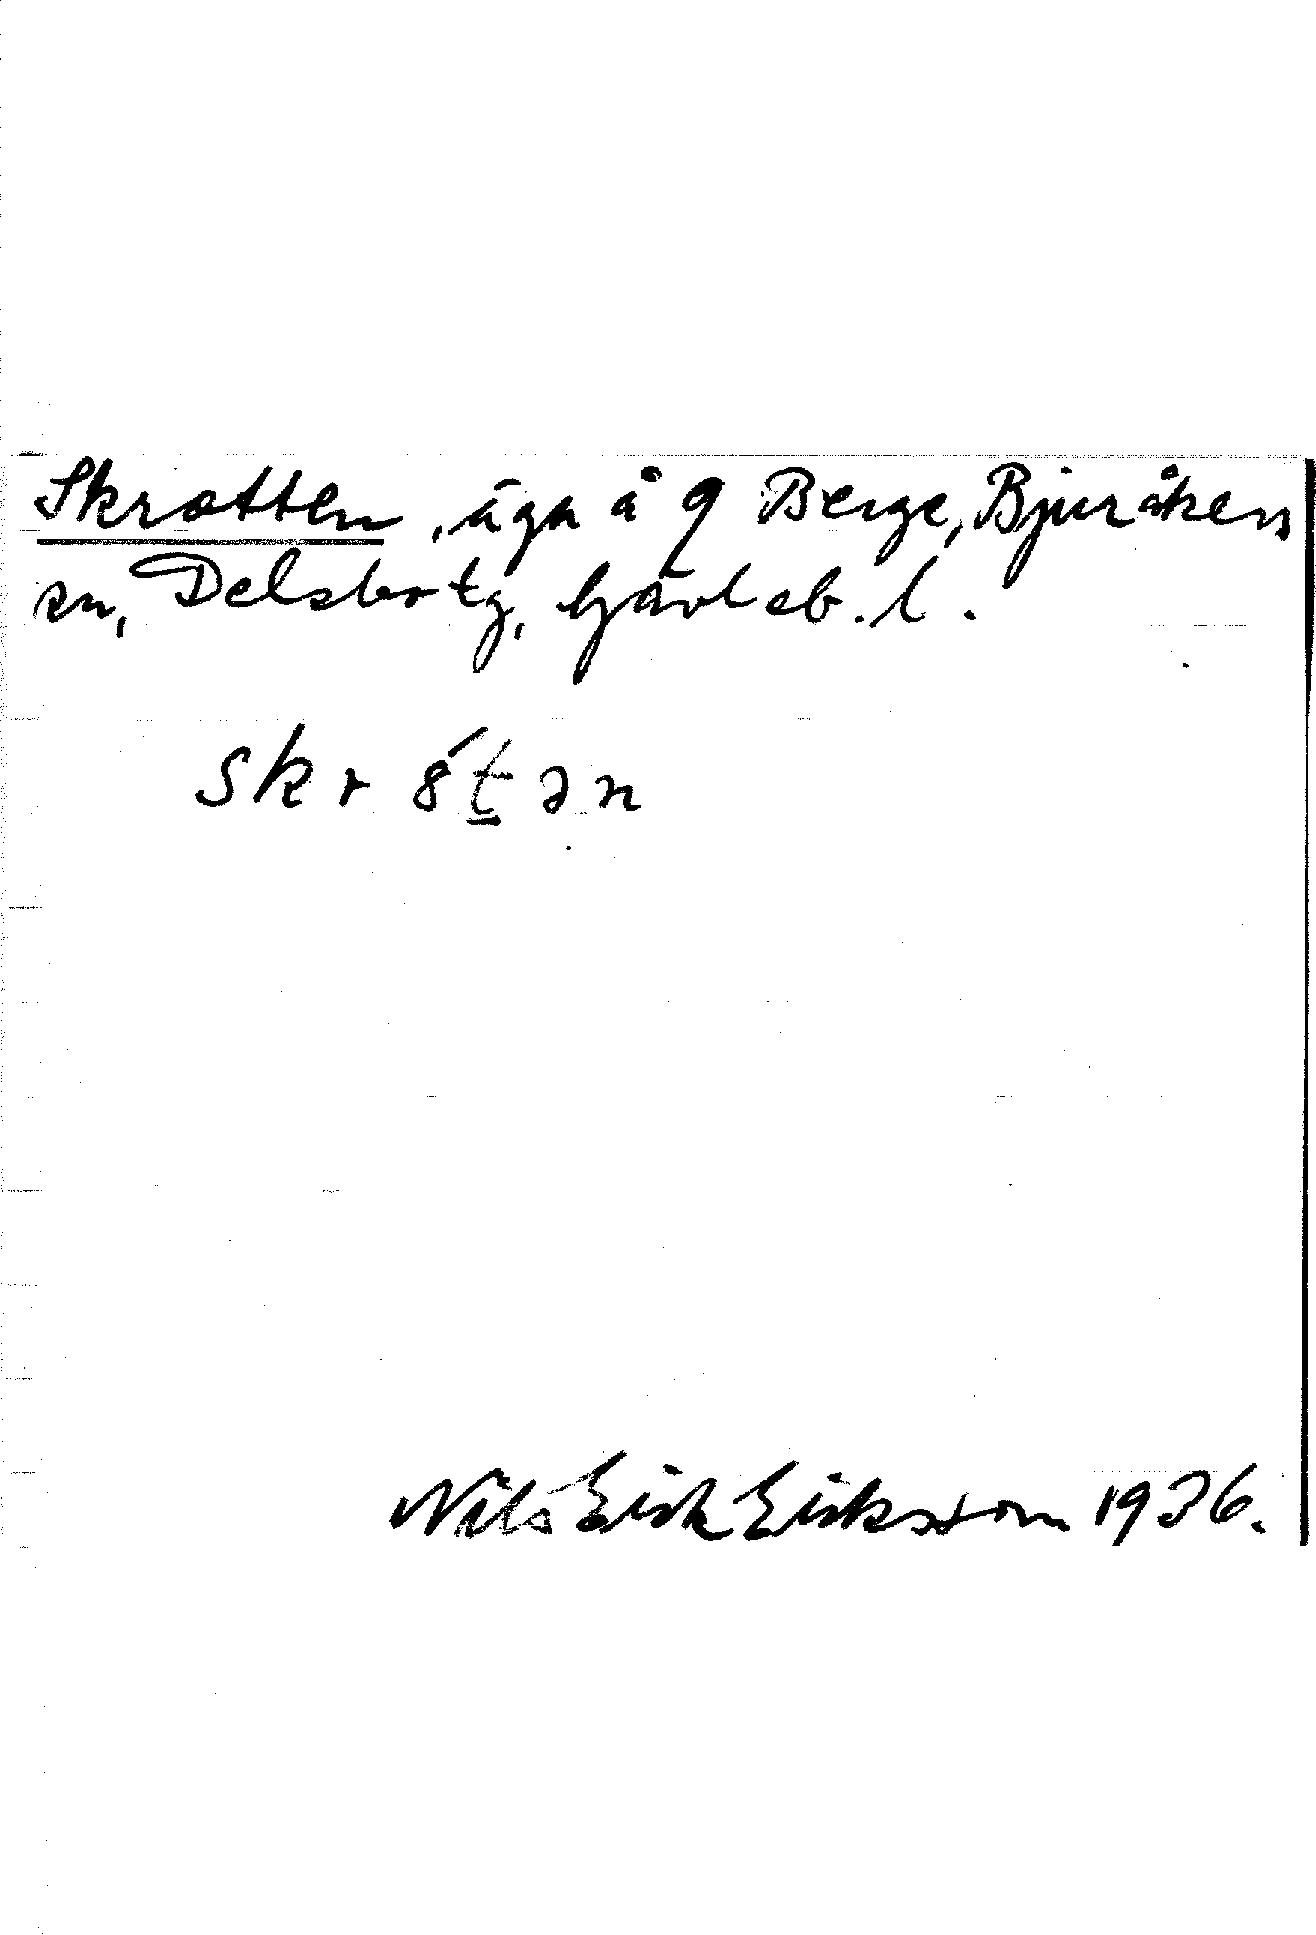 Skrotten, äga å 9 Berge, Bjuråkers
sn, Delsbo tg, Gävleb. l.
skr8́t̲ən
Nils Erik Eriksson 1936.